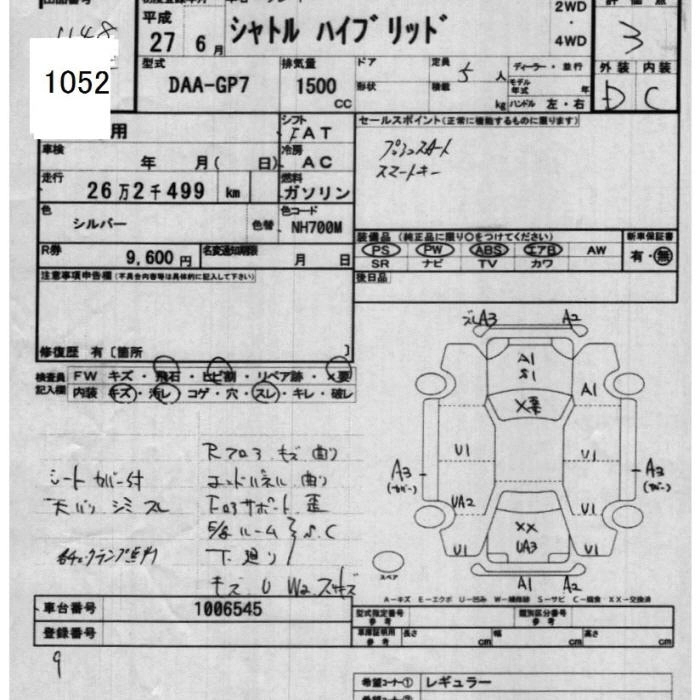 シャトル ハイブリッド
2WD
4WD
平成
27年 6月
3
型式 DAA-GP7
排気量 1500 CC
ドア 形状
定員 5人
積載 kg
ディーラー・並行
モデル年式 年
ハンドル 左・右
外装 内装
D C
1052
用
シフト FAT
車検 年 月( 日)
冷房 AC
走行 26万2千499 km
燃料 ガソリン
色 シルバー 色替
色コード NH700M
R券 9,600円
名変通知期限 月 日
セールスポイント(正常に機能するものに限ります)
プッシュスタート
スマートキー
装備品(純正品に限り○をつけてください)
PS PW ABS エアB AW
SR ナビ TV カワ
新車保証書
有・無
後日品
注意事項申告欄(不具合内容等は具体的に記入して下さい)
修復歴 有〔箇所 〕
検査員記入欄
FW キズ・飛石・ヒビ割・リペア跡・×要
内装 キズ・汚レ・コゲ・穴・スレ・キレ・破レ
シートカバー付
天バリ シミ スレ
各チェックランプ点灯
Rフロア キズ 曲り
エンドパネル 曲り
下廻り
キズ U W2
ズレA3 A2
A1
S1
A1
×要
U1 U1
A3 (カバー)
A2 (カバー)
UA2 U1
××
UA3
U1 U1
A1 A2
スペア
A－キズ E－エクボ U－凹み W－補修跡 S－サビ C－腐食 ××－交換済
車台番号 1006545
登録番号
型式指定番号 参考
類別区分番号 参考
車庫証明用 参考
長さ cm
幅 cm
高さ cm
9
希望コーナー① レギュラー
希望コーナー②